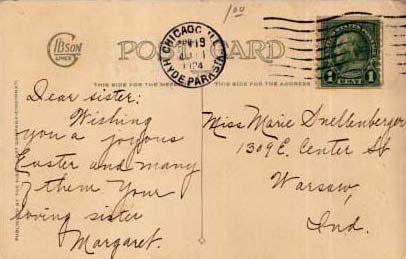 1 00
GIBSON
LINES
POST CARD
CHICAGO, ILL.
APR 19
1924
HYDE PARK STA.
UNITED STATES POSTAGE
1 CENT 1
THIS SIDE FOR MESSAGE
THIS SIDE FOR THE ADDRESS
Dear sister:
Wishing
you a joyous
Easter and many
of them Your
loving sister
Margaret.
Miss Marie Snellenberger
1309 E. Center St
Warsaw,
Ind.
PUBLISHED BY THE GIBSON ART COMPANY CINCINNATI